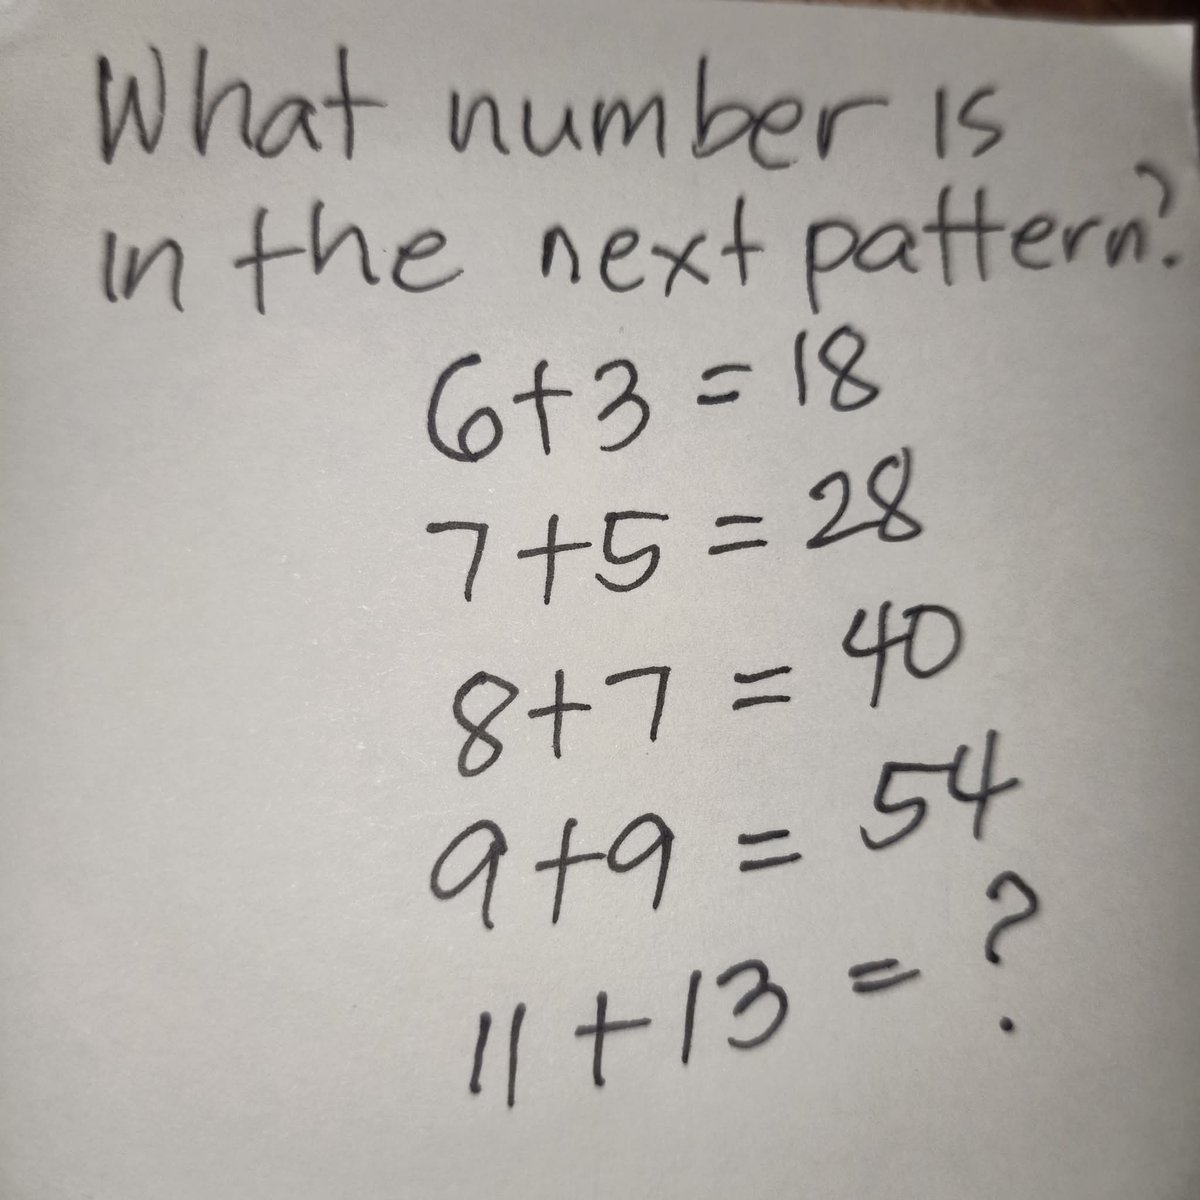 What number is
in the next pattern?
6+3 = 18
7+5 = 28
8+7 = 40
9+9 = 54
11+13 = ?